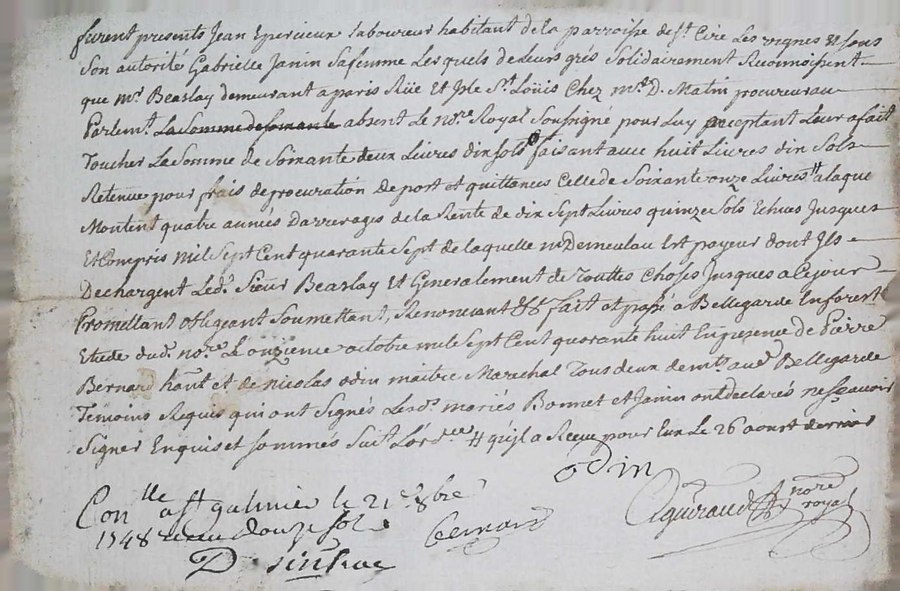 furent presents Jean Epercieux Laboureur habitant de la parroisse de st Cire Les vignes & sous
Son autorité Gabrielle Janin Sa femme Lesquels de Leurs grés Solidairement Reconnoissent
que mr. Beaslay demeurant a paris Rüe Et Isle St. Loüis Chez mre. D. Matin procureur au
Parlemt. La Somme de Soixante absent Le nore. Royal Soussigné pour Luy acceptant Leur a fait
Toucher La Somme de Soixante deux Livres dix sols faisant avec huit Livres dix Sols
Retenue pour frais de procuration de port et quittances Celle de Soixante onze Livres # a laque
Montent quatre années Darrerages de la Rente de dix Sept Livres quinze Sols Echues Jusques
Et Compris mil Sept Cent quarante Sept de laquelle mr Est payeur dont Ils
Dechargent Led. Sieur Beaslay Et Generalement de Touttes Choses Jusques a Ce jour
Promettant obligeant Soumettant, Renonceant && fait et passé a Bellegarde En forest
Etude dud. nore. L'onzieme octobre mil Sept Cent quarante huit En presence de Pierre
Bernard hant et de nicolas odin maitre Marechal Tous deux demts. aud. Bellegarde
Temoins Requis qui ont Signés Lesds. mariés Bonnet et Janin ont declarés ne Sçeavoir
Signer Enquis et Sommés Suivt. L'ordce # qu'il a Receu pour Eux Le 26 aoust dernier
odin
Conlle a st galmier le 21e 8bre
1748 receu douze Sols
Bernard
Aguiraud nore royal